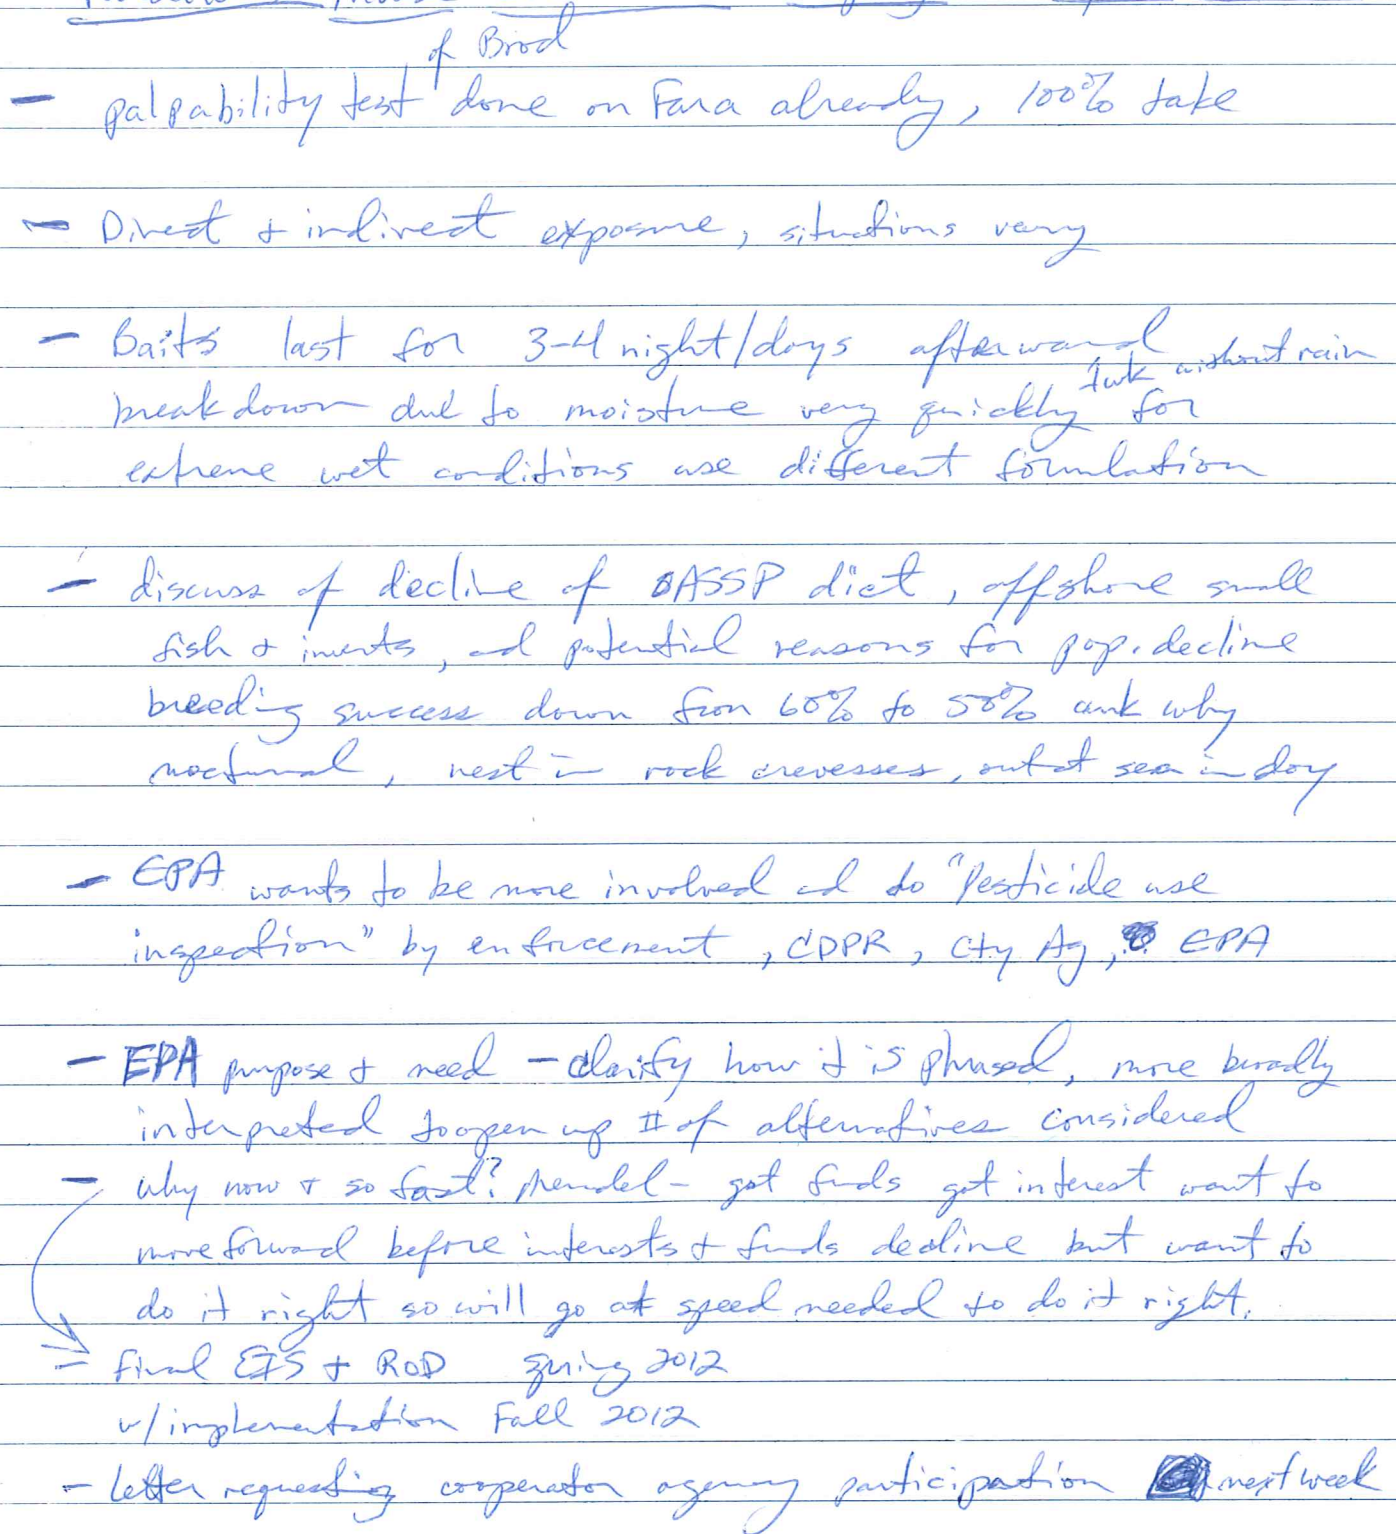 of Brod
- palpability test done on Fara already, 100% take
- Direct + indirect exposure, situations vary
- Baits last for 3-4 night/days afterward
1wk without rain
breakdown due to moisture very quickly for
extreme wet conditions use different formulation
- discuss of decline of ASSP diet, offshore small
fish + inverts, and potential reasons for pop. decline
breeding success down from 60% to 50% unk why
nocturnal, nest in rock crevesses, out at sea in day
- EPA wants to be more involved and do "Pesticide use
inspection" by enforcement, CDPR, Cty Ag, EPA
- EPA purpose + need - clarify how it is phrased, more broadly
interpreted to open up # of alternatives considered
- why now + so fast? Mendel - got funds got interest want to
move forward before interests + funds decline but want to
do it right so will go at speed needed to do it right.
= final EIS + ROD spring 2012
w/implementation Fall 2012
- letter requesting cooperator agency participation next week